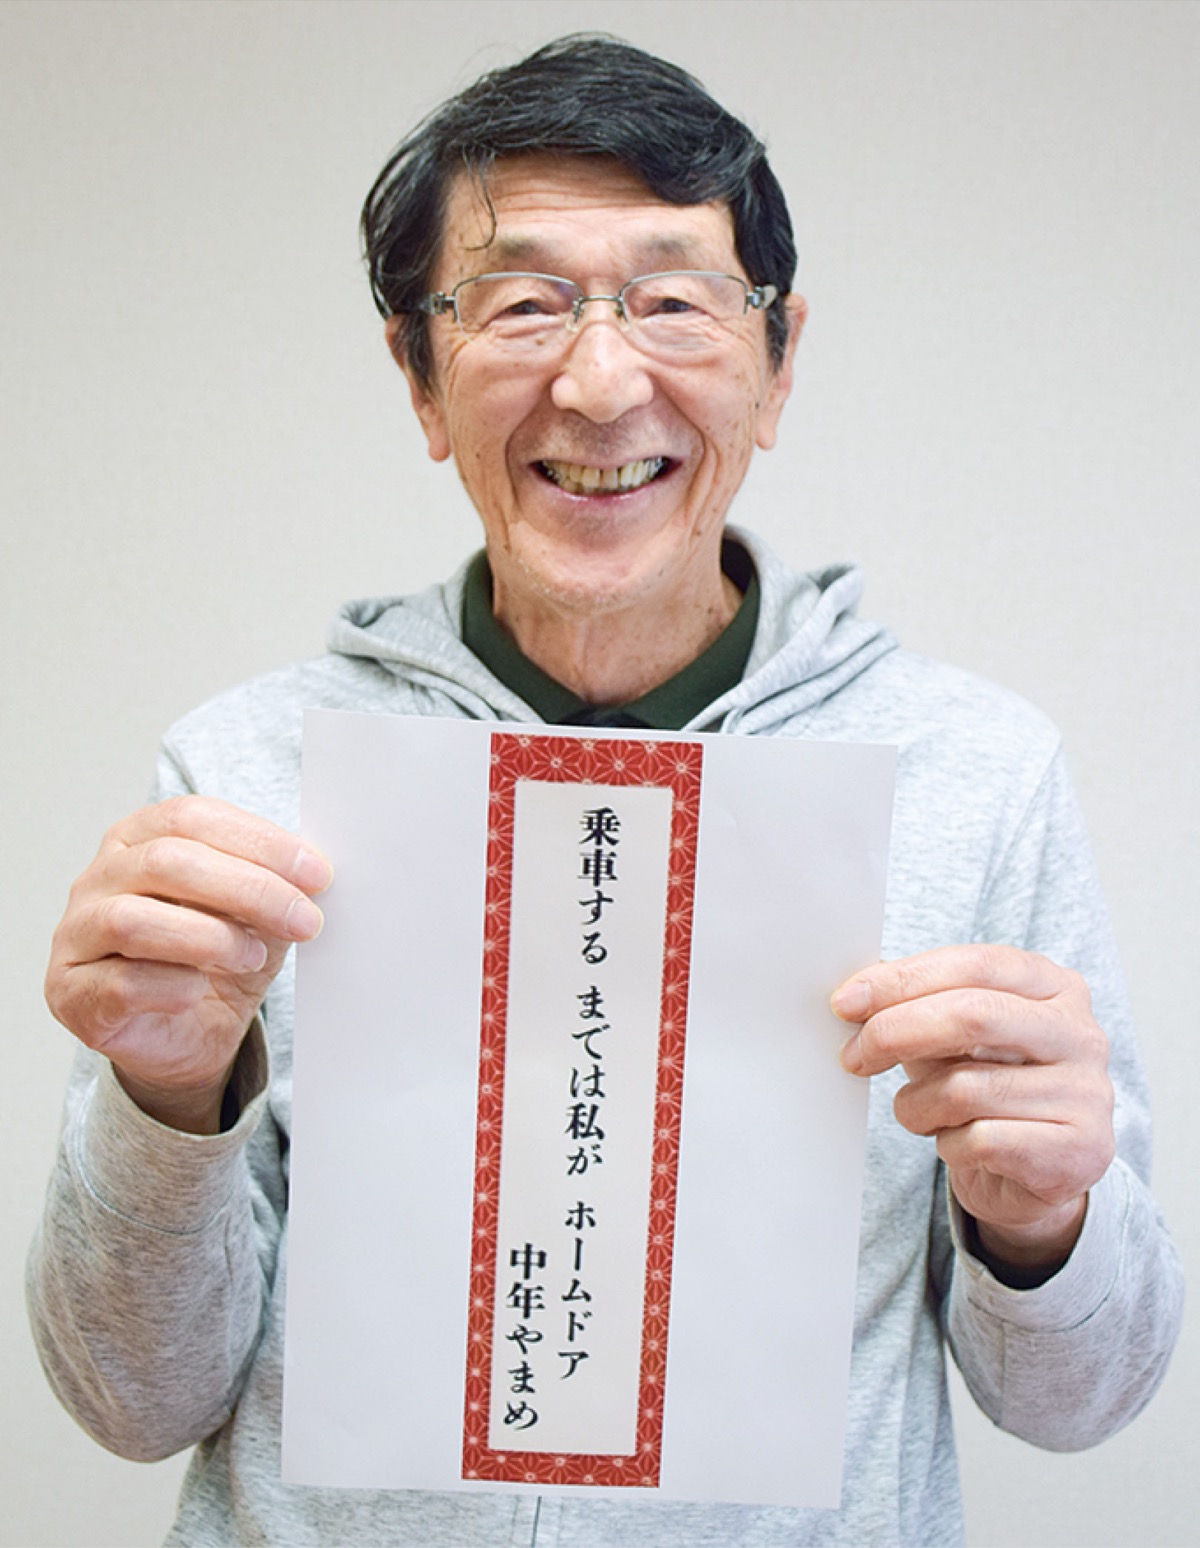 乗車する までは私が ホームドア
中年やまめ